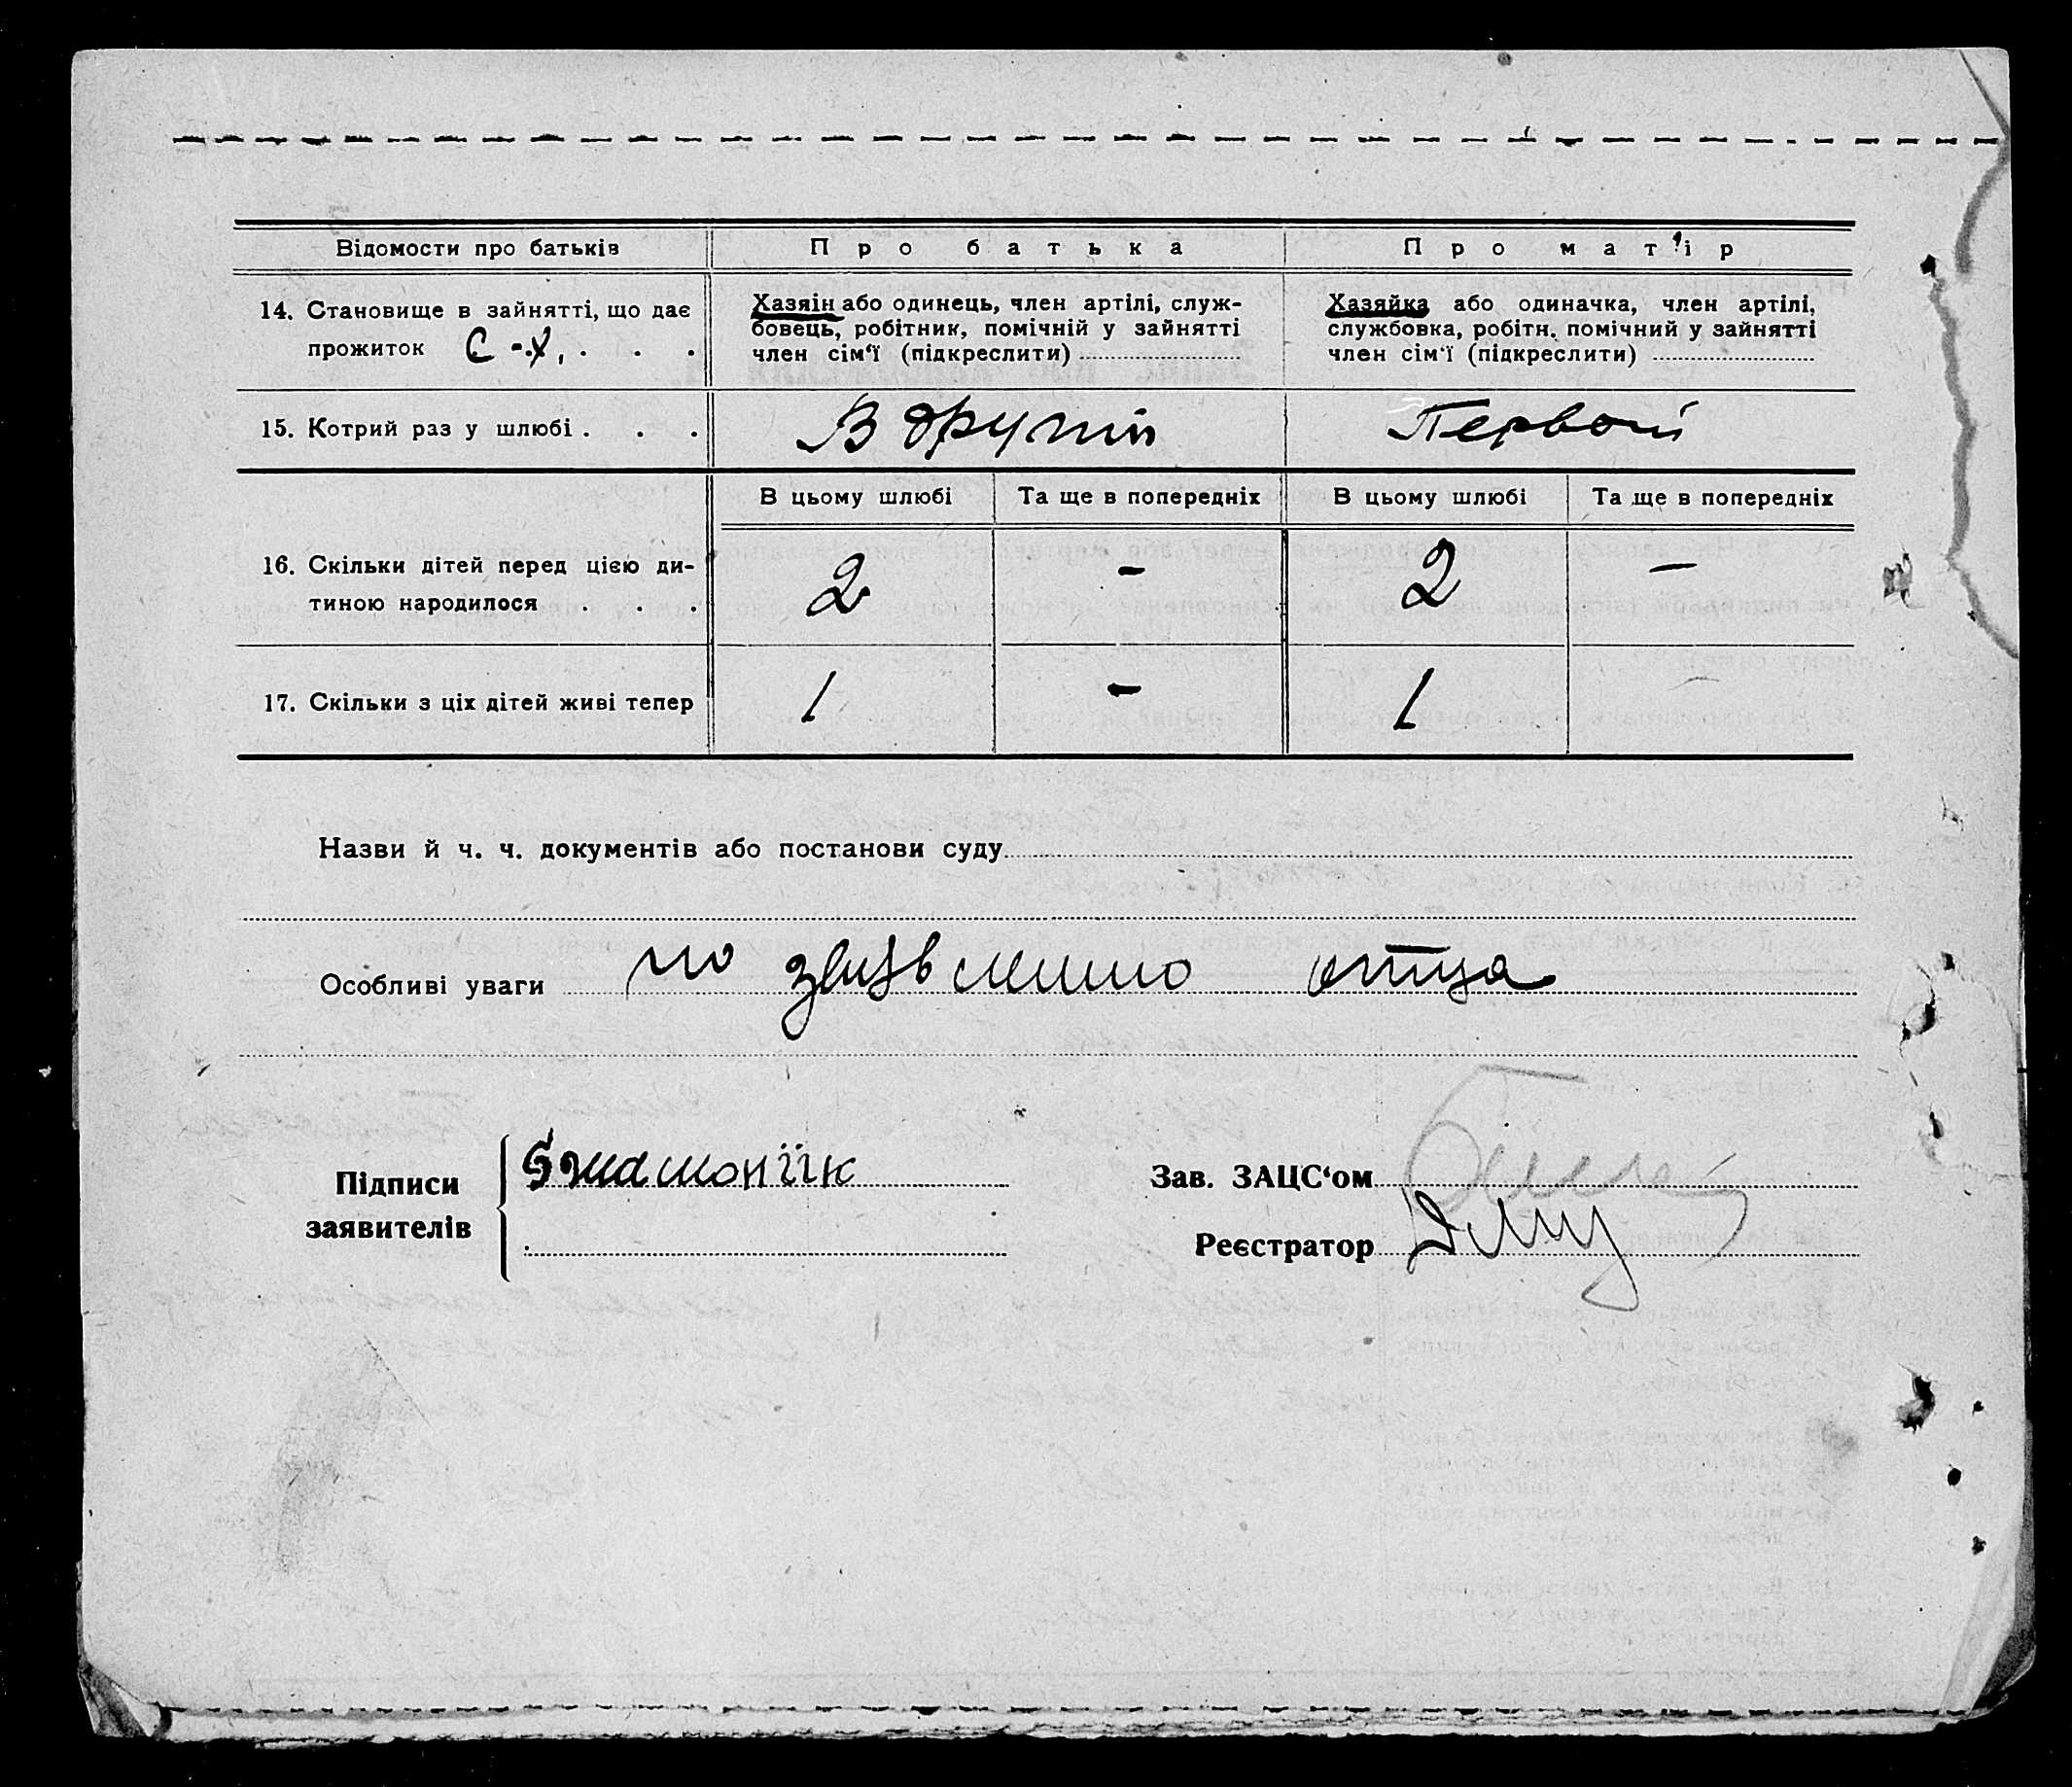 Відомости про батьків
Про батька
Про матір
14. Становище в зайнятті, що дає
прожиток С-х. . . .
Хазяін або одинець, член артілі, служ-
бовець, робітник, помічній у зайнятті
член сім'ї (підкреслити)
Хазяйка або одиначка, член артілі,
службовка, робітн. помічний у зайнятті
член сім'ї (підкреслити)
15. Котрий раз у шлюбі . . .
В
Первый
В цьому шлюбі
Та ще в попередніх
В цьому шлюбі
Та ще в попередніх
16. Скільки дітей перед цією ди-
тиною народилося . . .
2
-
2
-
17. Скільки з ціх дітей живі тепер
1
-
1
Назви й ч. ч. документів або постанови суду
Особливі уваги по отца
Підписи
заявителів
Зав. ЗАЦС'ом
Реєстратор